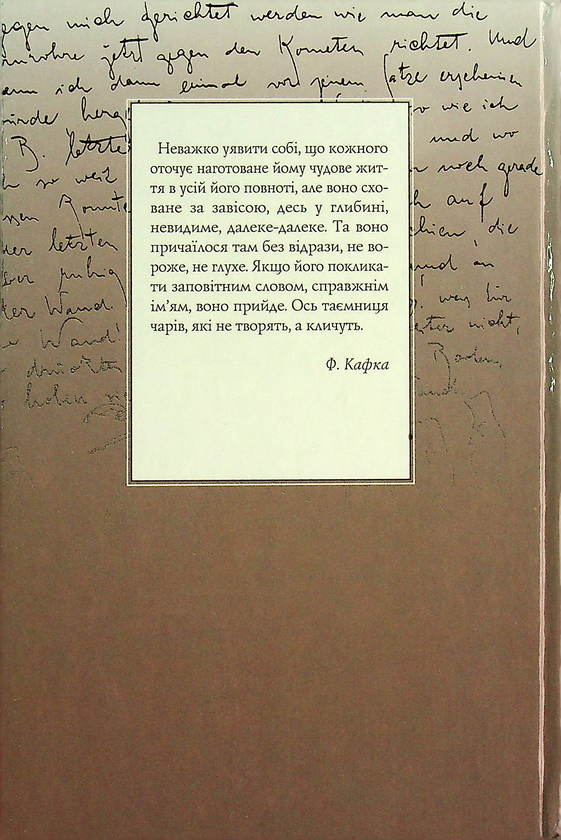 gegen mich gerichtet werden wie man die
jetzt gegen den Kometen richtet. Und
ich dann einmal vor jenem Satze erscheinen
würde herge
so wie ich
B. letzte
und wo
so weit
noch gerade
auf
letzten
die
ruhig
und an
Wand.
weg für
Wand!
nicht,
Boden,
haben
Неважко уявити собі, що кожного
оточує наготоване йому чудове жит-
тя в усій його повноті, але воно схо-
ване за завісою, десь у глибині,
невидиме, далеке-далеке. Та воно
причаїлося там без відрази, не во-
роже, не глухе. Якщо його поклика-
ти заповітним словом, справжнім
ім’ям, воно прийде. Ось таємниця
чарів, які не творять, а кличуть.
Ф. Кафка